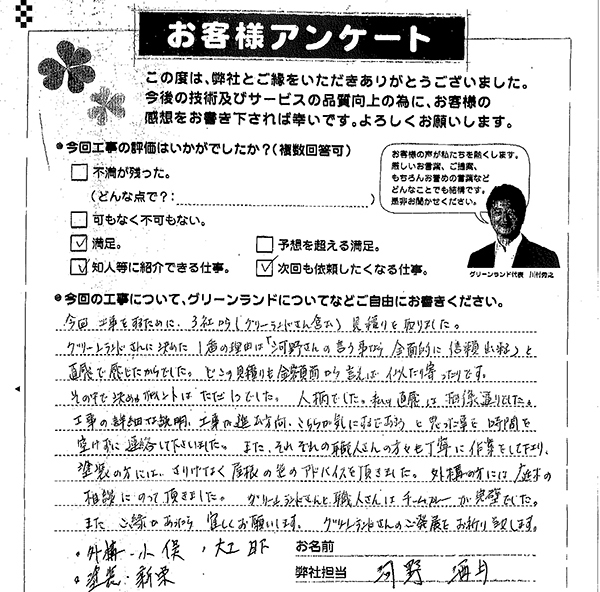 お客様アンケート
この度は、弊社とご縁をいただきありがとうございました。
今後の技術及びサービスの品質向上の為に、お客様の
感想をお書き下されば幸いです。よろしくお願いします。
●今回工事の評価はいかがでしたか?(複数回答可)
不満が残った。
(どんな点で?: )
可もなく不可もない。
満足。
予想を超える満足。
知人等に紹介できる仕事。
次回も依頼したくなる仕事。
お客様の声が私たちを熱くします。
厳しいお言葉、ご提案、
もちろんお誉めの言葉など
どんなことでも結構です。
是非お聞かせください。
グリーンランド代表
●今回の工事について、グリーンランドについてなどご自由にお書きください。
今回工事を為ために、3社から(グリーンランドさん含む)見積りを取りました。
グリーンランドさんに決めた1番の理由は「河野さんの言う事なら全面的に信頼出来る」と
直感で感じたからでした。どこの見積りも金額面から言えば似たり寄ったりです。
その中で決めるポイントはただ1つでした。人柄でした。私の直感は
工事の詳細な説明、工事の進む方向、こちらが気にするであろうと思った事を時間を
空けずに連絡して下さいました。また、それぞれの職人さんの方々も丁寧に作業をして下さり、
塗装の方には、さりげなく屋根の色のアドバイスを頂きました。外構の方には
相談にのって頂きました。グリーンランドさんと職人さんはチームプレーが完璧でした。
またご縁がありましたら宜しくお願いします。グリーンランドさんのご発展をお祈り致します。
・外構・小俣
・塗装・新栄
お名前
弊社担当 河野